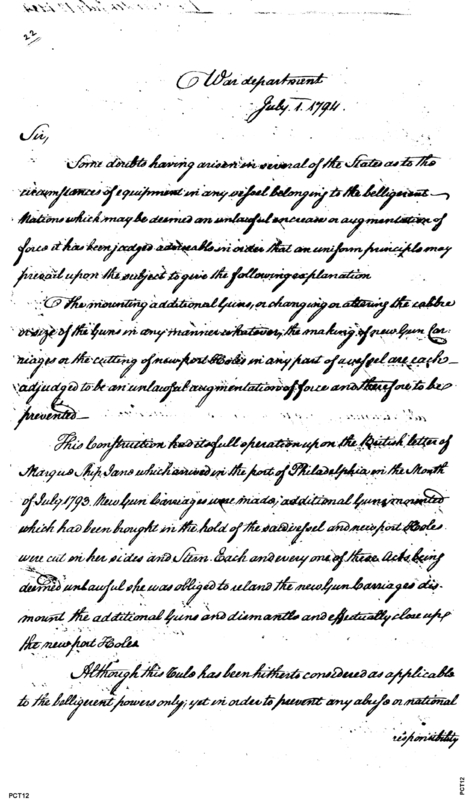 22
War department
July 1. 1794.
Sir,
Some doubts having arisen in several of the States as to the
circumstances of equipment in any vessel belonging to the belligerent
Nations which may be deemed an unlawful encrease or augmentation of
force it has been judged adviseable in order that an uniform principle may
prevail upon the subject to give the following explanation
The mounting additional Guns, or changing or altering the calibre
or size of the Guns in any manner whatever, the making of new Gun Car
riages or the cutting of new port Holes in any part of a vessel are each
adjudged to be an unlawful augmentation of force and therefore to be
prevented
This Construction had its full operation upon the British letter of
Marque Ship Jane which arrived in the port of Philadelphia in the Month
of July 1793. New Gun Carriages were made, additional Guns mounted
which had been bought in the hold of the said vessel and new port Holes
were cut in her sides and Stern. Each and every one of these Acts being
deemed unlawful she was obliged to reland the new Gun Carriages dis-
mount the additional Guns and dismantle and effectually close up
the new port Holes
Although this rule has been hitherto considered as applicable
to the belligerent powers only; yet in order to prevent any abuse or national
responsibility
PCT12
PCT12